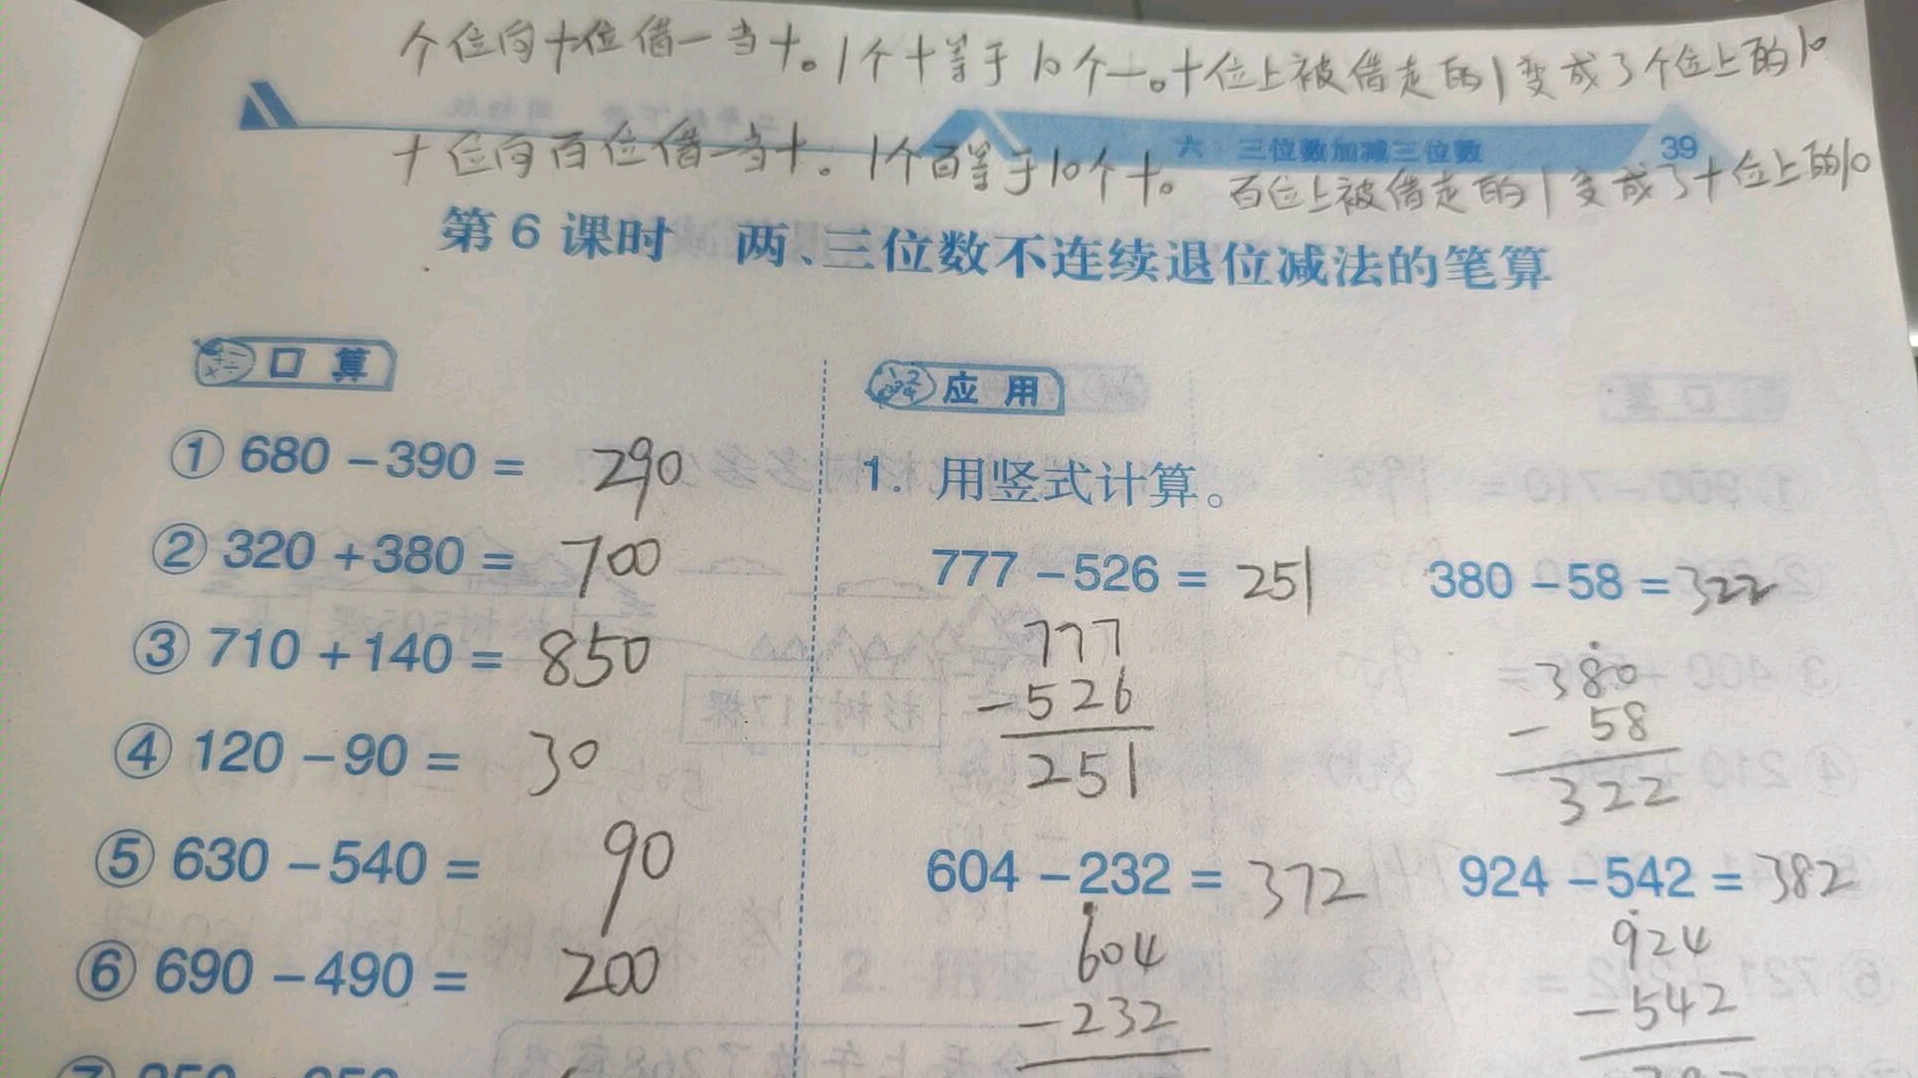 个位向十位借一当十。1个十等于10个一。十位上被借走的1变成了个位上的10
六 三位数加减三位数 39
十位向百位借一当十。1个百等于10个十。百位上被借走的1变成了十位上的10
第6课时 两、三位数不连续退位减法的笔算
口算
① 680-390= 290
② 320+380= 700
③ 710+140= 850
④ 120-90= 30
⑤ 630-540= 90
⑥ 690-490= 200
应用
1. 用竖式计算。
777-526= 251 380-58= 322
777
-526
251
380
- 58
322
604-232= 372 924-542= 382
604
-232
924
-542